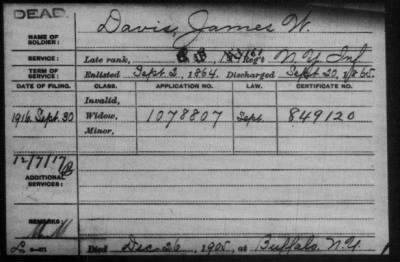 DEAD.
NAME OF SOLDIER: Davis, James W.
SERVICE: Late rank, Reg't N.Y. Inf
TERM OF SERVICE: Enlisted Sept. 2, 1864. Discharged Sept. 20, 1865.
DATE OF FILING. CLASS. APPLICATION NO. LAW. CERTIFICATE NO.
Invalid,
1916. Sept. 30 Widow, 1078807 Sept. 849120
Minor,
12/7/17
ADDITIONAL SERVICES:
REMARKS:
Died Dec. 26, 1905, at Buffalo, N.Y.